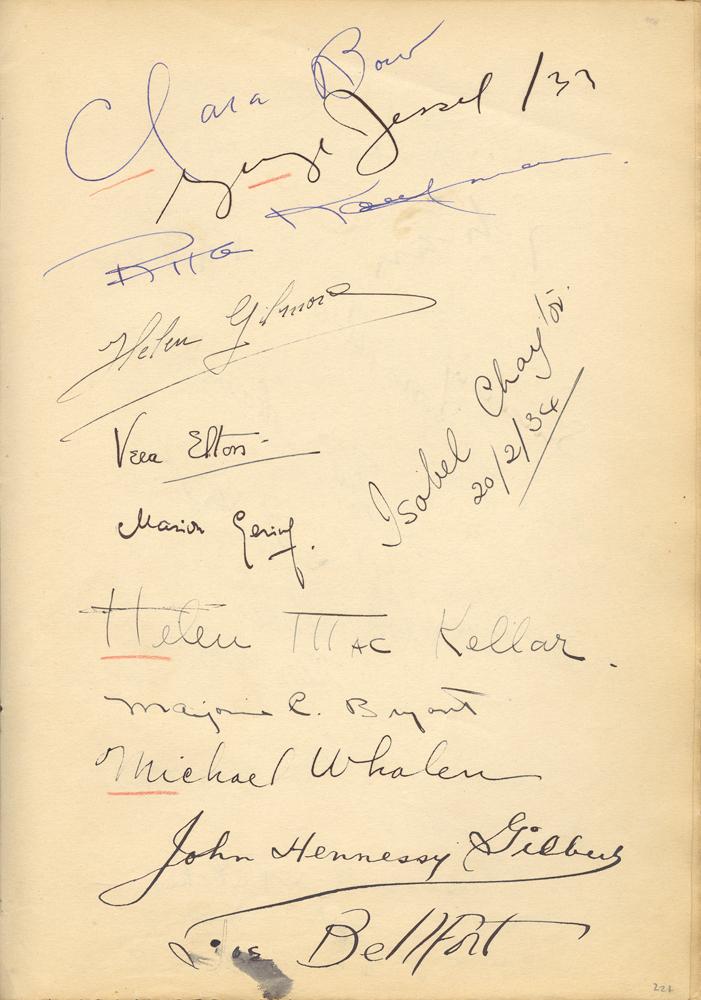 Clara Bow
George Jessel /33
Rita Kaufman.
Helen Gilmore
Isabel Chaytor.
20/2/34
Vera
Marion Gering.
Helen MacKellar.
Marjorie C. Bryant
Michael Whalen
John Hennessy
Joe Bellfort
221